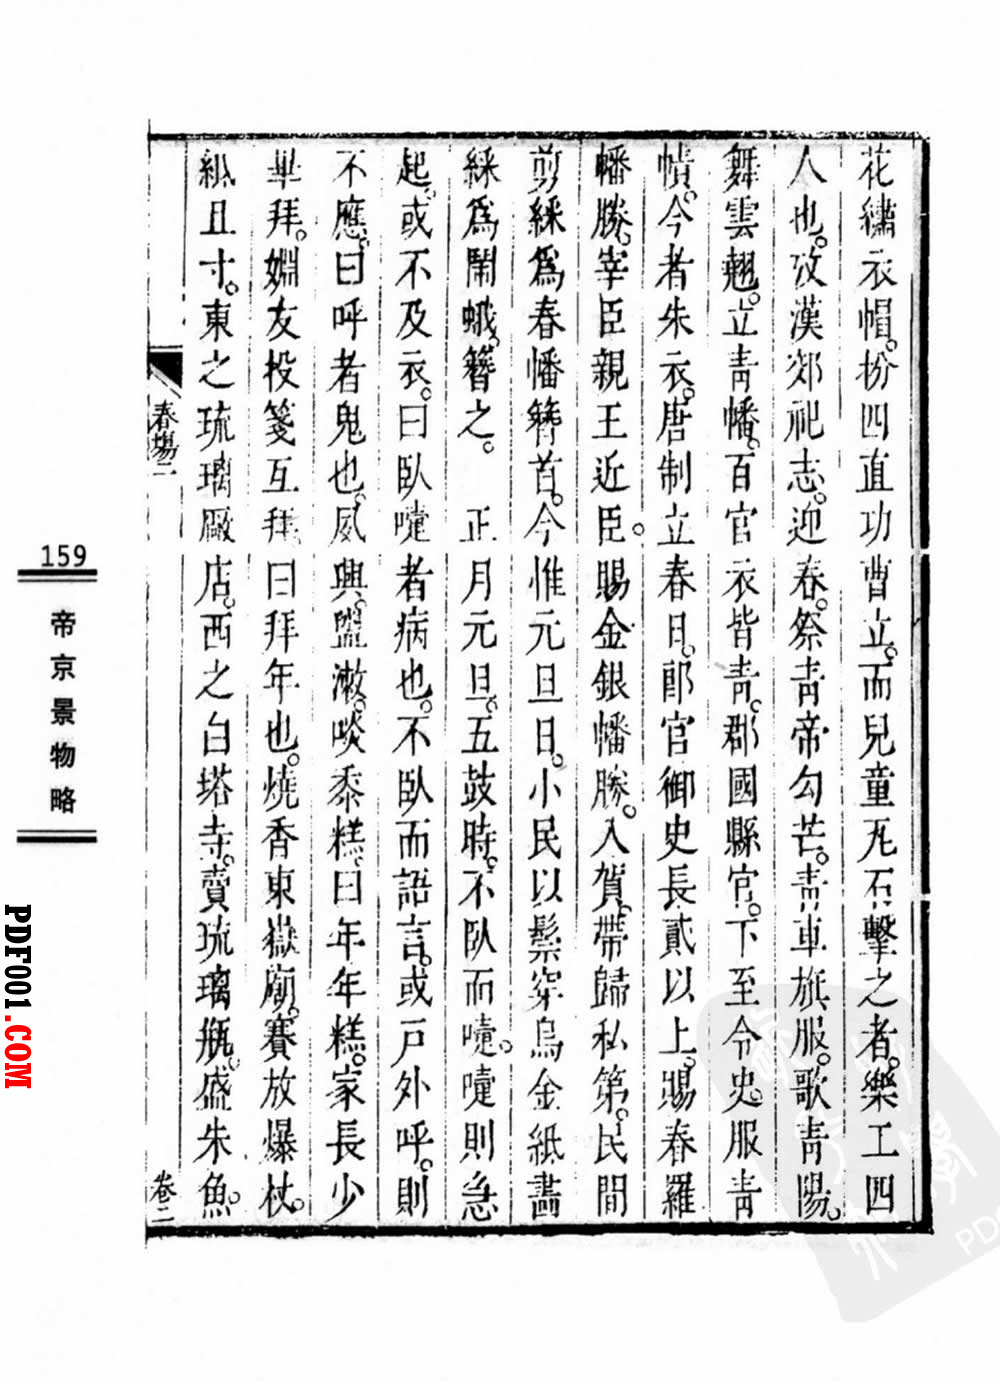 花繡衣帽。扮四直功曹立。而兒童瓦石擊之者。樂工四
人也。攷漢郊祀志。迎春。祭青帝勾芒。青車旗服。歌青陽。
舞雲翹。立青幡。百官衣皆青。郡國縣官。下至令史。服青
幘。今者朱衣。唐制立春日。郎官御史長貳以上。賜春羅
幡勝。宰臣親王近臣。賜金銀幡勝。入賀。帶歸私第。民間
剪綵爲春幡簪首。今惟元旦日。小民以鬃穿烏金紙畵
綵爲鬧蛾。簪之。 正月元旦。五鼓時。不臥而嚏。嚏則急
起。或不及衣。曰臥嚏者病也。不臥而語言。或戶外呼。則
不應。曰呼者鬼也。夙興。盥漱。啖黍糕。曰年年糕。家長少
畢拜。姻友投箋互拜曰拜年也。燒香東嶽廟。賽放爆杖。
紙且寸。東之琉璃厰店。西之白塔寺。賣琉璃瓶。盛朱魚。
春塲二
卷二
159
帝京景物略
PDF001.COM
PD